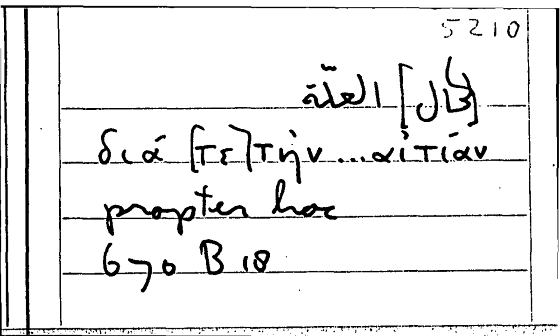 5210
[لحال] العلّة
διά [τε] τὴν ... αἰτίαν
propter hoc
670 B 18